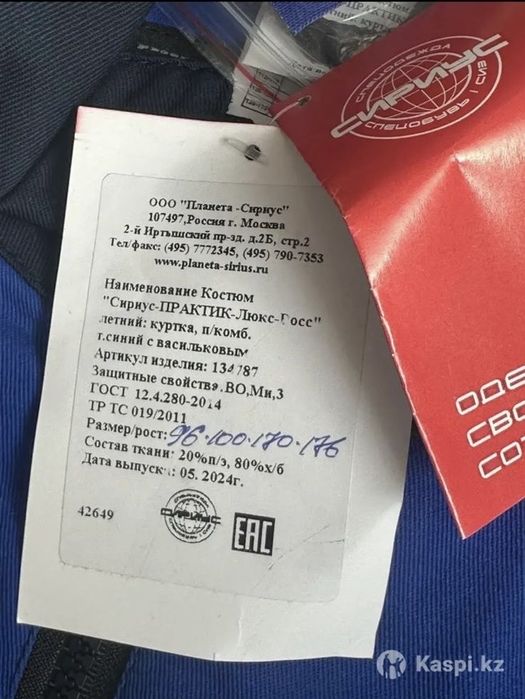 СПЕЦОДЕЖДА
СИРИУС
СПЕЦОБУВЬ | СИЗ
ООО "Планета -Сириус"
107497,Россия г. Москва
2-й Иртышский пр-зд. д.2Б, стр.2
Тел/факс: (495) 7772345, (495) 790-7353
www.planeta-sirius.ru
Наименование Костюм
"Сириус-ПРАКТИК-Люкс-Босс"
летний: куртка, п/комб.
т.синий с васильковым
Артикул изделия: 134787
Защитные свойства: ВО,Ми,З
ГОСТ 12.4.280-2014
ТР ТС 019/2011
Размер/рост: 96-100-170-176
Состав ткани: 20%п/э, 80%х/б
Дата выпуска: 05. 2024г.
42649
СИРИУС
EAC
ОДЕ
СВО
СО
Kaspi.kz